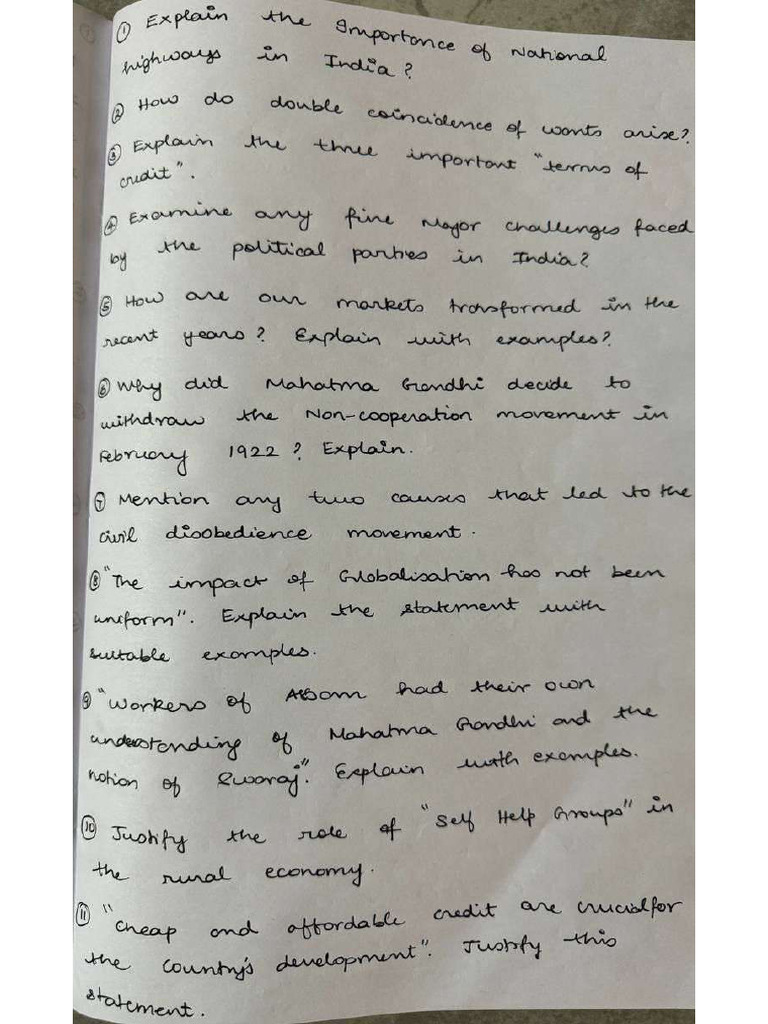 ① Explain the Importance of National
highways in India?
② How do double coincidence of wants arise?
③ Explain the three important "terms of
credit".
④ Examine any five Major challenges faced
by the political parties in India?
⑤ How are our markets transformed in the
recent years? Explain with examples?
⑥ Why did Mahatma Gandhi decide to
withdraw the Non-cooperation movement in
February 1922? Explain.
⑦ Mention any two causes that led to the
civil disobedience movement.
⑧ "The impact of Globalisation has not been
uniform". Explain the statement with
suitable examples.
⑨ "Workers of Assam had their own
understanding of Mahatma Gandhi and the
notion of Swaraj". Explain with examples.
⑩ Justify the role of "Self Help Groups" in
the rural economy.
⑪ "Cheap and affordable credit are crucial for
the country's development". Justify this
statement.